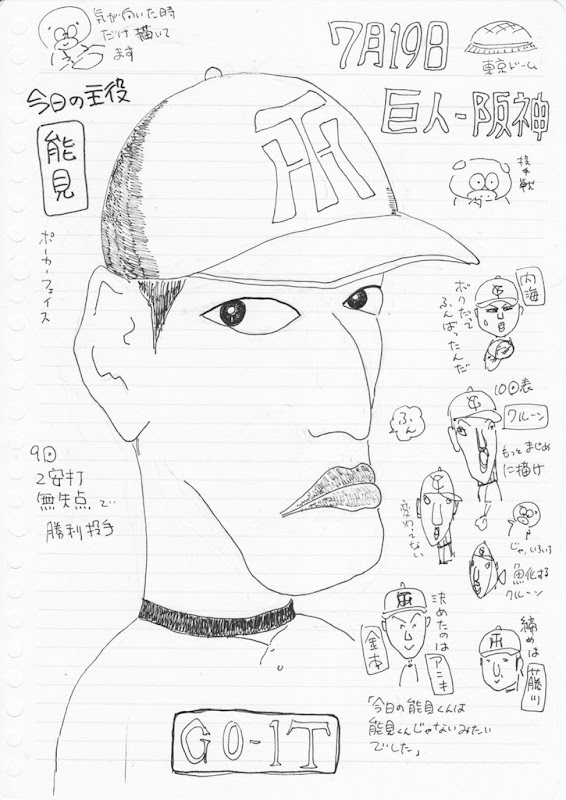 気が向いた時
だけ描いて
ます
7月19日
東京ドーム
巨人-阪神
今日の主役
能見
ポーカーフェイス
投手戦
内海
ボクだって
ふんばったんだ
10回表
クルーン
もっとまじめ
に描け
ふん
変わってない
じゃ、いろいろ
魚化する
クルーン
9回
2安打
無失点で
勝利投手
決めたのは
アニキ
金本
締めは
藤川
「今日の能見くんは
能見くんじゃないみたい
でした」
GO-1T